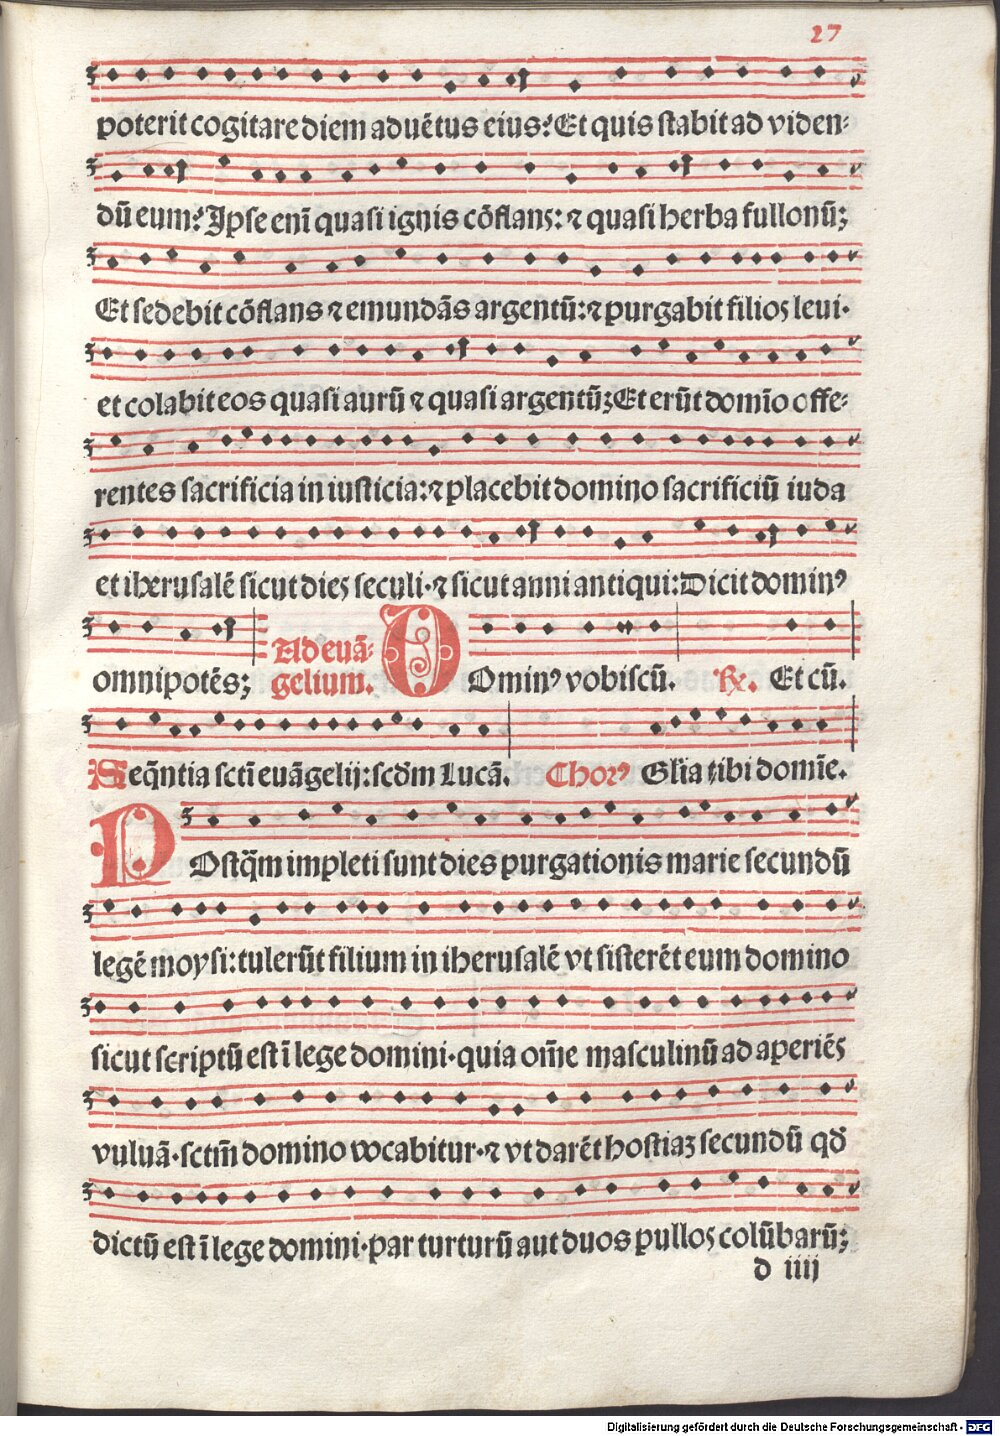 27
poterit cogitare diem aduētus eius? Et quis ſtabit ad viden⸗
dū eum? Ipſe enī quaſi ignis cōflans: ⁊ quaſi herba fullonū;
Et ſedebit cōflans ⁊ emundās argentū: ⁊ purgabit filios leui.
et colabit eos quaſi aurū ⁊ quaſi argentūꝫ Et erūt domīo offe⸗
rentes ſacrificia in iuſticia: ⁊ placebit domino ſacrificiū iuda
et iheruſalē ſicut dies ſeculi. ⁊ ſicut anni antiqui: Dicit dominꝰ
omnipotēs; Ad euā⸗
gelium. DOminꝰ vobiſcū. ℟. Et cū.
Seq̄ntia ſcti euāgelij: ſcd̄m Lucā. Chorꝰ Glīa tibi domīe.
POſtq̄m impleti ſunt dies purgationis marie ſecundū
legē moyſi: tulerūt filium in iheruſalē vt ſiſterēt eum domino
ſicut ſcriptū eſt ī lege domini. quia om̄e maſculinū ad aperiēs
vuluā. ſctm̄ domino vocabitur. ⁊ vt darēt hoſtiaꝫ ſecundū qd̄
dictū eſt ī lege domini. par turturū aut duos pullos colūbarū;
d iiij
Digitalisierung gefördert durch die Deutsche Forschungsgemeinschaft - DFG